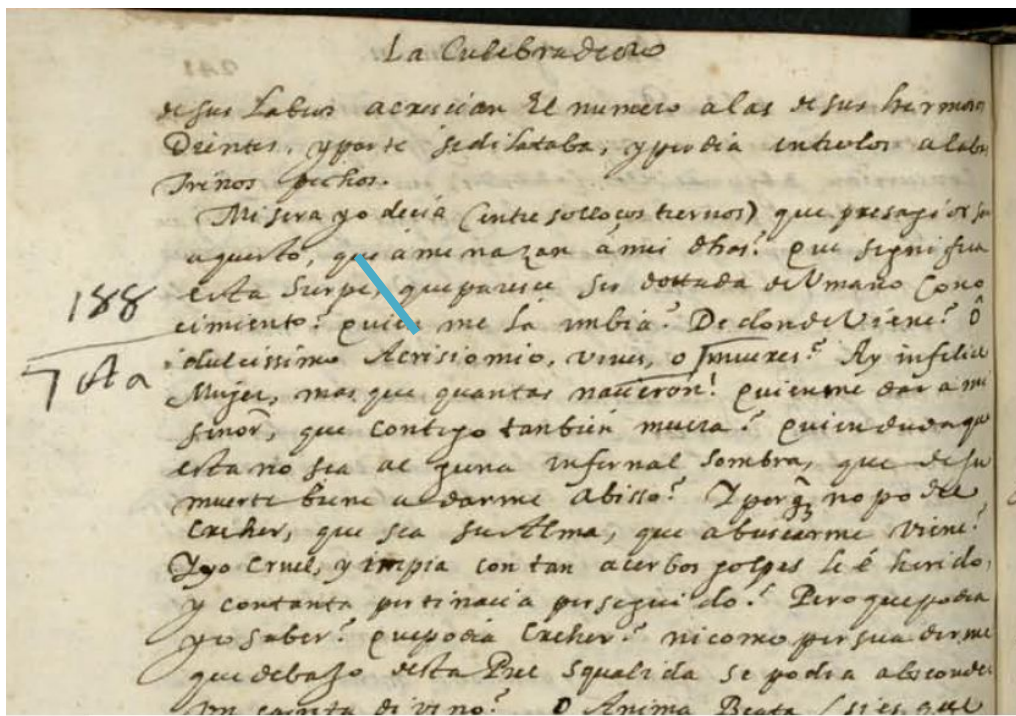 La Culebra de oro
de sus Labios acrescian El numero a las de sus hermosos
Dientes, y parte se dilataba, y perdia entre los alabas
trinos pechos.
Misera yo decia (entre sollocos tiernos) que presagios son
aquesto, que amenazan á mi dhas? que significa
esta Sierpe, que paresce ser dottada de Umano Cono
cimiento? quien me la imbia? De donde Viene? ô
dulcissimo Acrisio mio, vives, o mueres? Ay infelice
Mujer, mas que quantas nacieron! quien me dara mi
señor, que contigo tanbien muera? quien duda que
esta no sea al guna infernal sombra, que de su
muerte biene a darme abisso? Y porq̃ no podre
Creher, que sea su Alma, que a buscarme viene?
Y yo Cruel, y impia con tan acerbos golpes le é herido,
y con tanta pertinacia persegui do? Pero que podia
yo saber? que podia Creher? ni como persuadirme
que debajo desta Piel squalida se podia absconder
un espiritu divino? O Anima Beata (si es que
188
7 ota